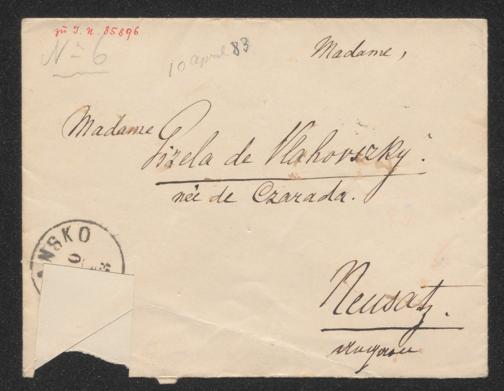 zu I. N. 85896
No 6
10 April 83
Madame,
Madame Gizela de Vlahovszky.
née de Czarada.
NSKO
Neusatz.